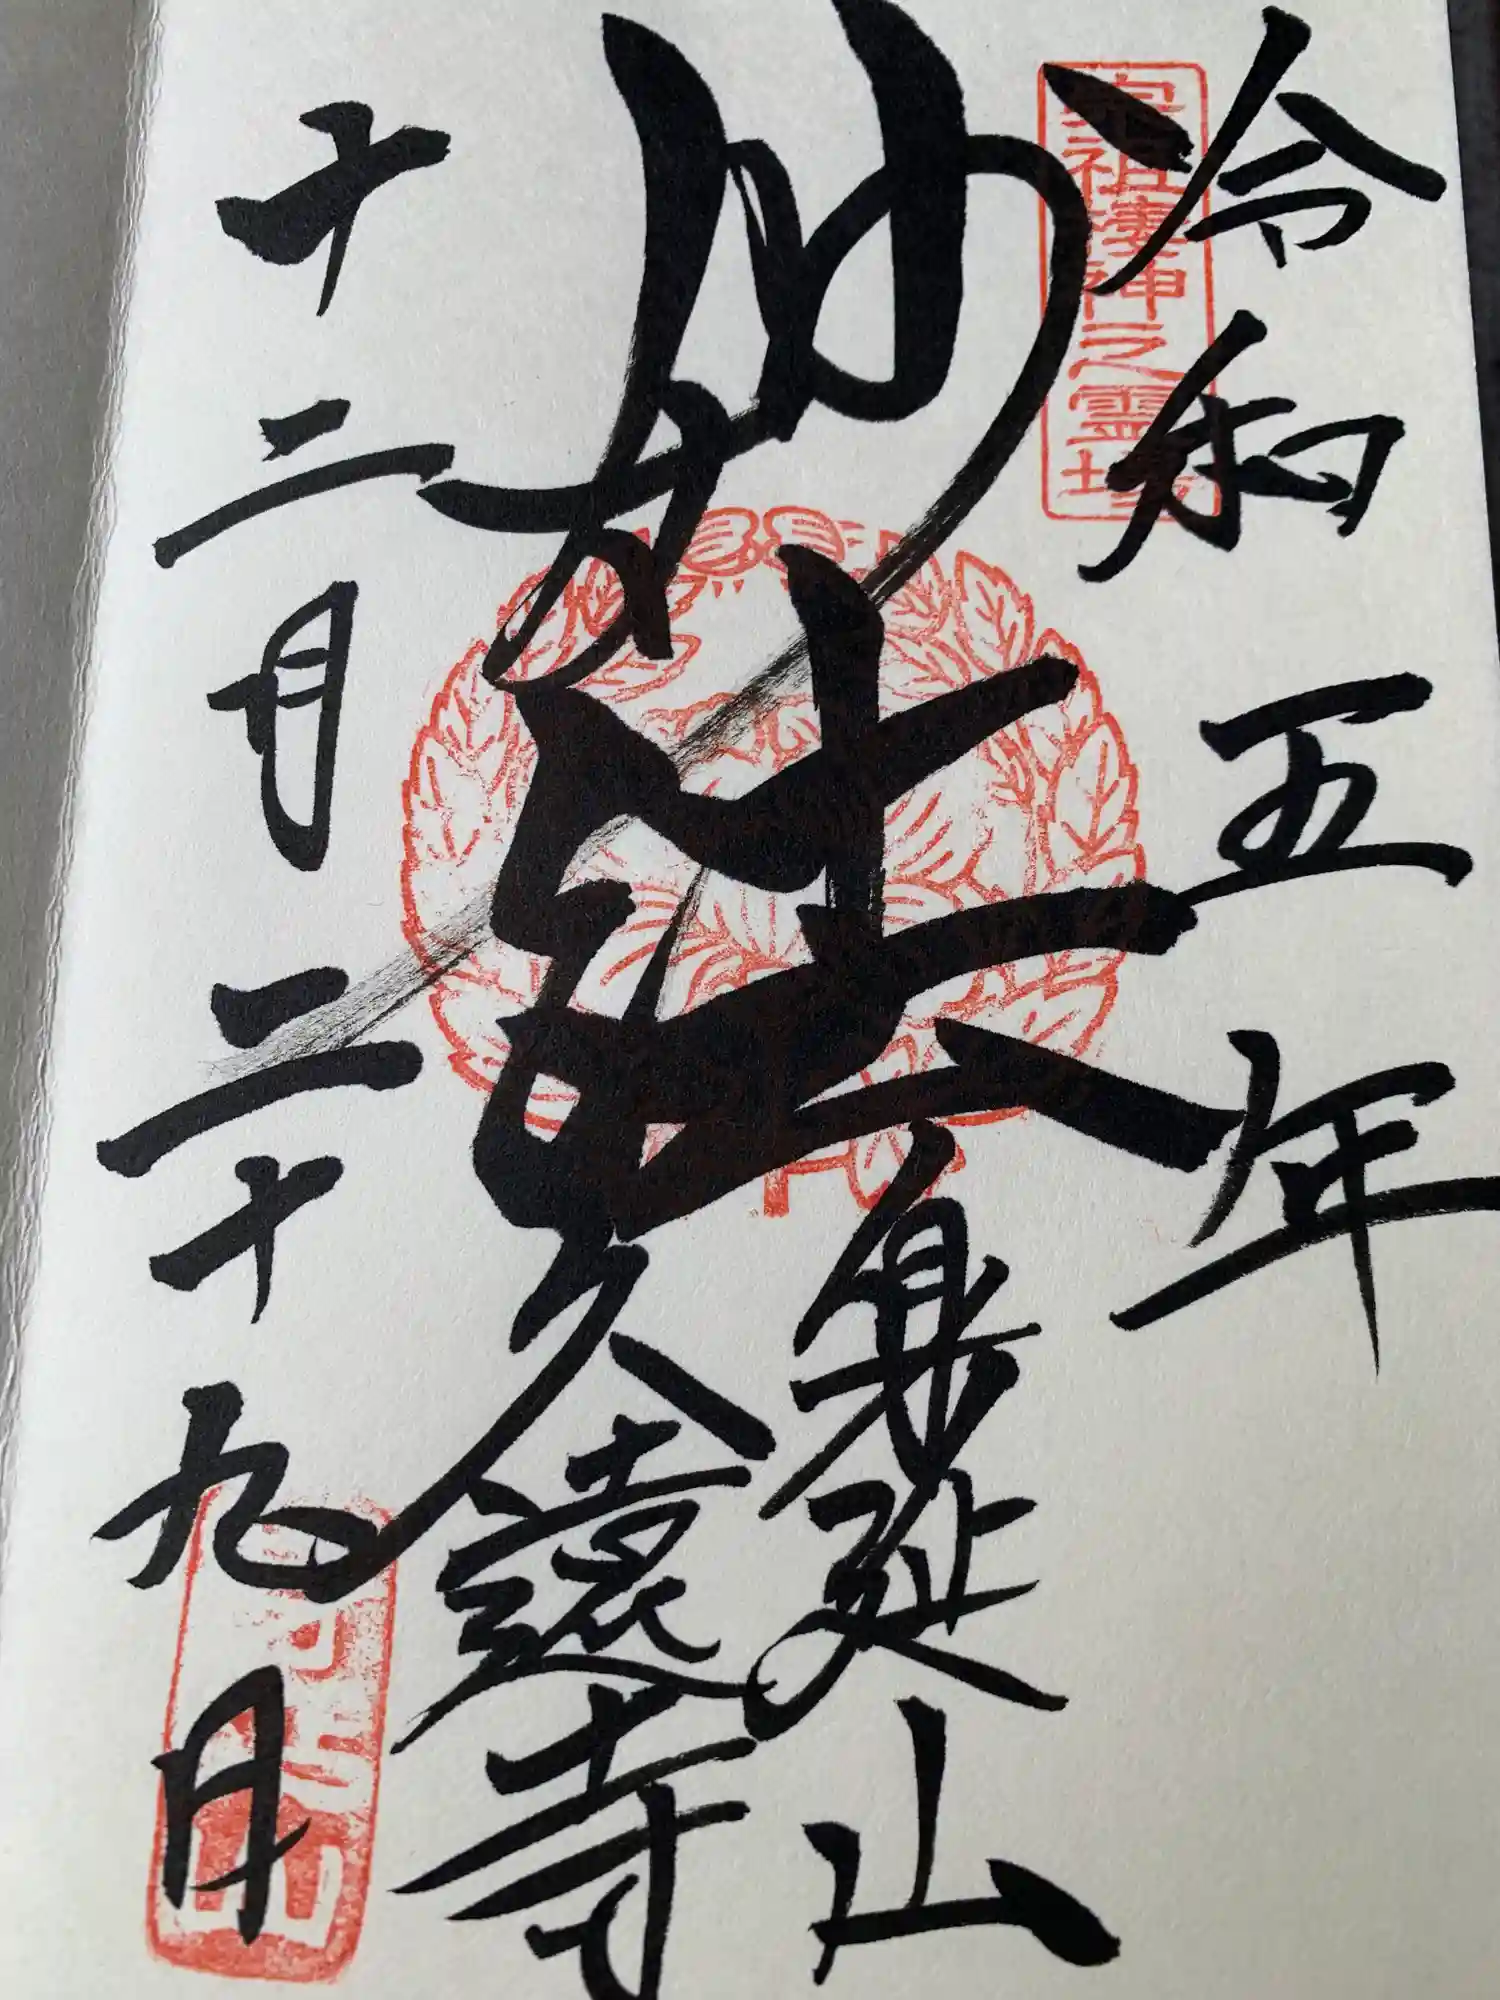 令和五年
宗祖棲神之霊場
妙法
身延山
久遠寺
十二月二十九日